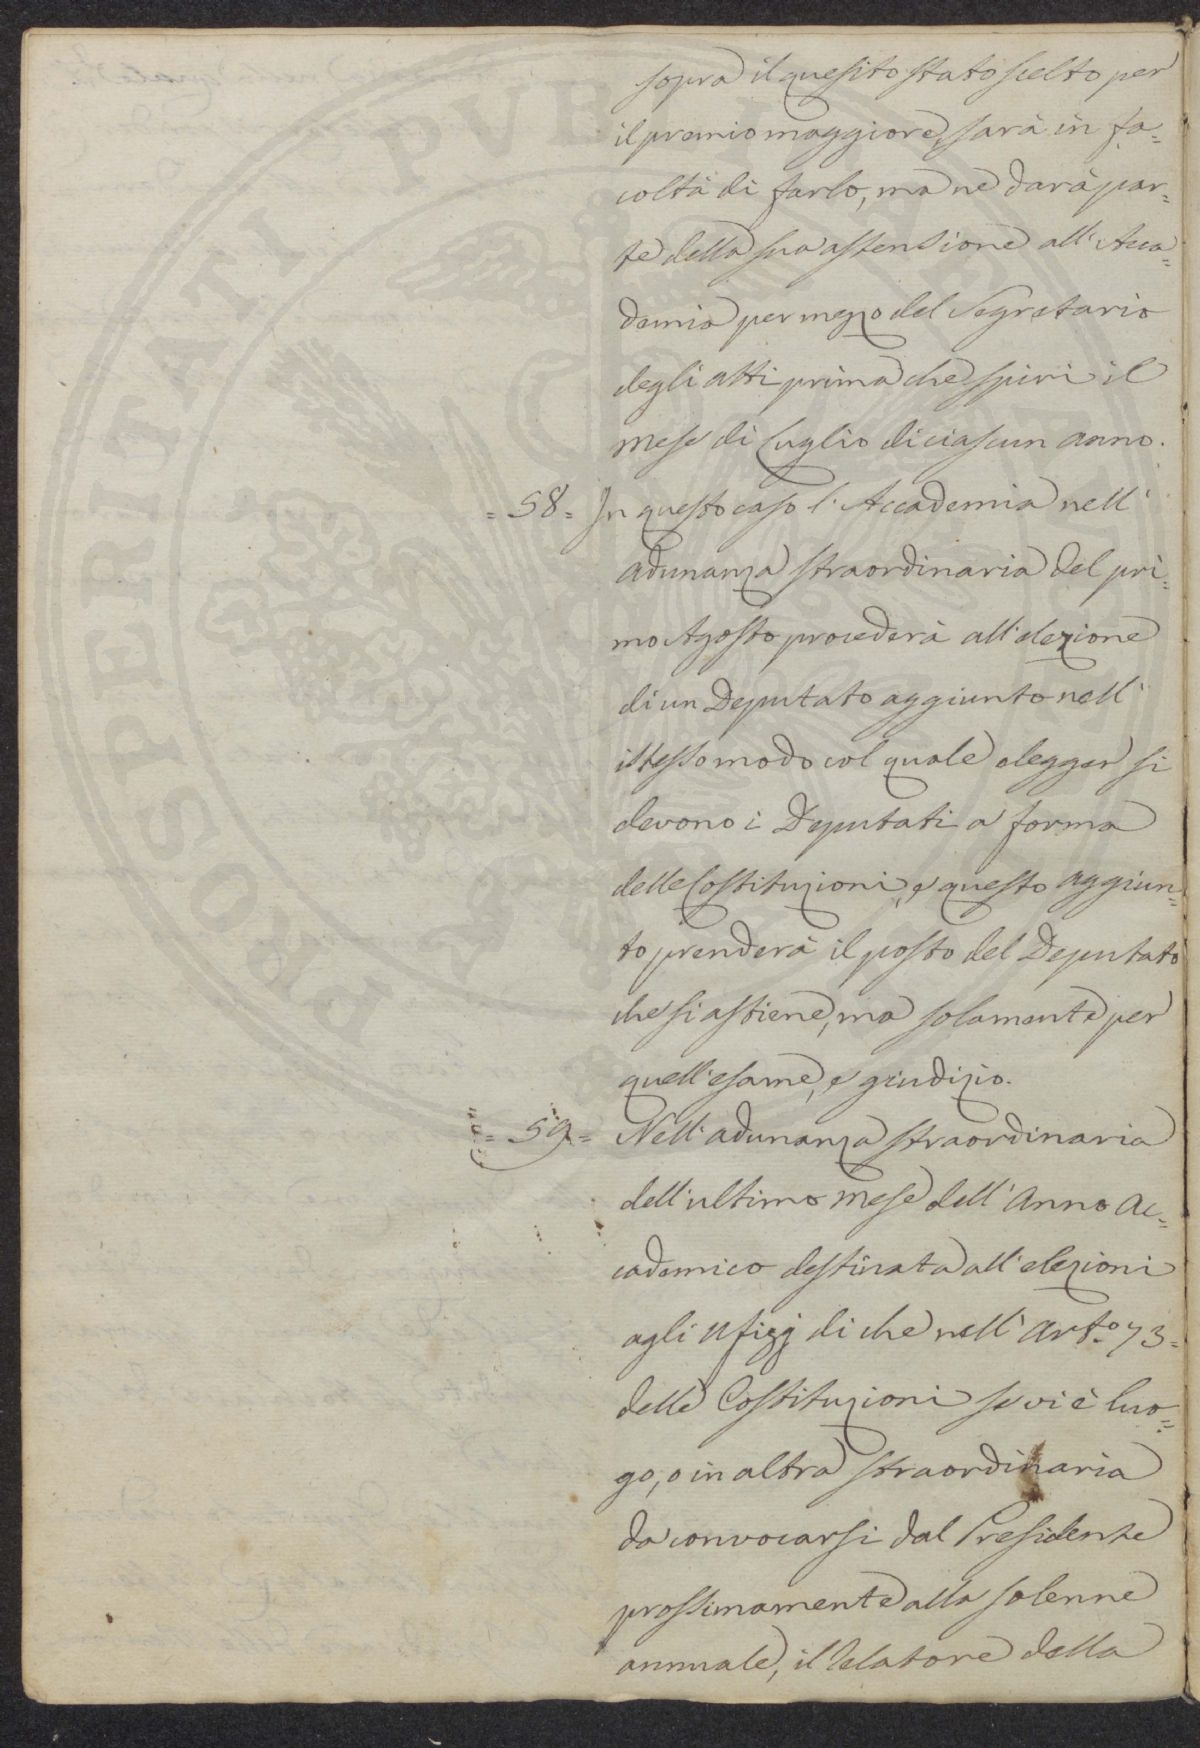 sopra il quesito stato scelto per
il premio maggiore, sarà in fa=
coltà di farlo, ma ne darà par=
te della sua astensione all'Acca=
demia per mezzo del Segretario
degli atti prima che spiri il
mese di Luglio di ciascun anno.
=58= In questo caso l'Accademia nell'
adunanza straordinaria del pri=
mo Agosto procederà all'elezione
di un Deputato aggiunto nell'
istesso modo col quale elegger si
devono i Deputati a forma
delle Costituzioni, e questo aggiun=
to prenderà il posto del Deputato
che si astiene, ma solamente per
quell'esame, e giudizio.
=59= Nell'adunanza straordinaria
dell'ultimo mese dell'Anno Ac=
cademico destinata all'elezioni
agli Ufizj di che nell'Art.º 73=
delle Costituzioni se vi è luo=
go, o in altra straordinaria
da convocarsi dal Presidente
prossimamente alla solenne
annuale, il Relatore della
PROSPERITATI PVBLICAE